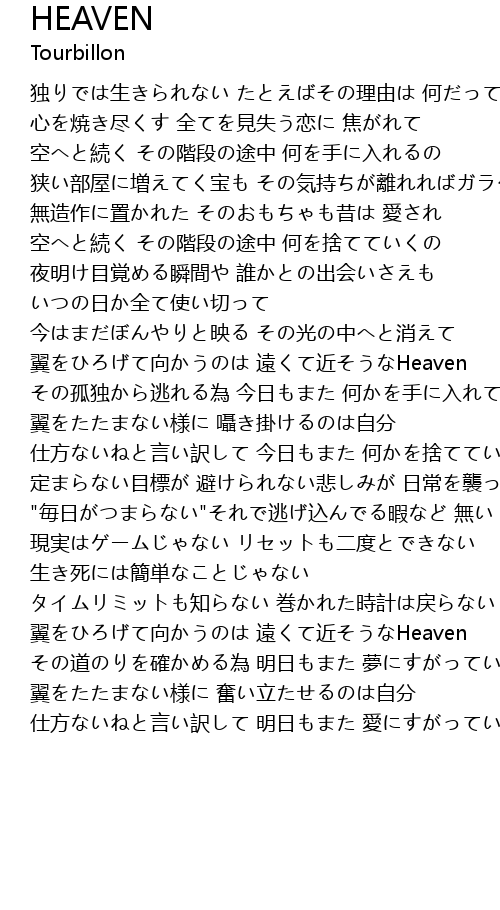 HEAVEN
Tourbillon
独りでは生きられない たとえばその理由は 何だって
心を焼き尽くす 全てを見失う恋に 焦がれて
空へと続く その階段の途中 何を手に入れるの
狭い部屋に増えてく宝も その気持ちが離れればガラ
無造作に置かれた そのおもちゃも昔は 愛され
空へと続く その階段の途中 何を捨てていくの
夜明け目覚める瞬間や 誰かとの出会いさえも
いつの日か全て使い切って
今はまだぼんやりと映る その光の中へと消えて
翼をひろげて向かうのは 遠くて近そうなHeaven
その孤独から逃れる為 今日もまた 何かを手に入れて
翼をたたまない様に 囁き掛けるのは自分
仕方ないねと言い訳して 今日もまた 何かを捨ててい
定まらない目標が 避けられない悲しみが 日常を襲っ
"毎日がつまらない"それで逃げ込んでる暇など 無い
現実はゲームじゃない リセットも二度とできない
生き死には簡単なことじゃない
タイムリミットも知らない 巻かれた時計は戻らない
翼をひろげて向かうのは 遠くて近そうなHeaven
その道のりを確かめる為 明日もまた 夢にすがってい
翼をたたまない様に 奮い立たせるのは自分
仕方ないねと言い訳して 明日もまた 愛にすがってい